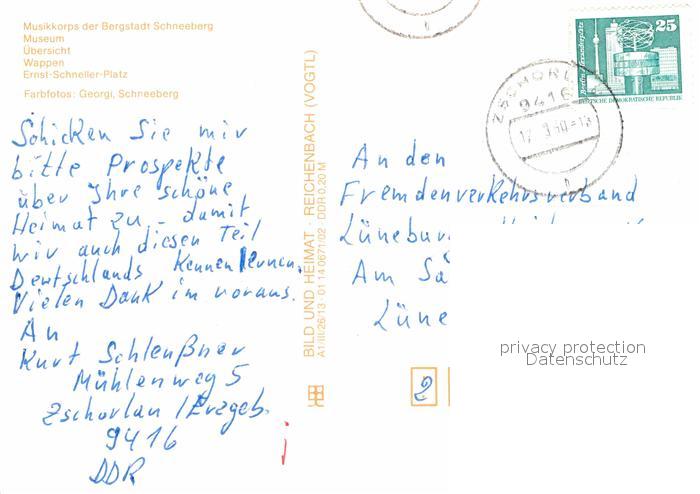 Musikkorps der Bergstadt Schneeberg
Museum
Übersicht
Wappen
Ernst-Schneller-Platz
Farbfotos: Georgi, Schneeberg
Schicken Sie mir
bitte Prospekte
über Ihre schöne
Heimat zu - damit
wir auch diesen Teil
Deutschlands kennenlernen.
Vielen Dank im voraus.
An
Kurt Schleußner
Mühlenweg 5
Zschorlau / Erzgeb.
9416
DDR
BILD UND HEIMAT · REICHENBACH (VOGTL)
A1/III/26/13 01 14 0671/02 DDR 0,20 M
Berlin, Alexanderplatz
25
DEUTSCHE DEMOKRATISCHE REPUBLIK
ZSCHORL
9416
An den
Fremdenverkehrsverband
Lünebur
Am Sä
Lüne
2
privacy protection
Datenschutz